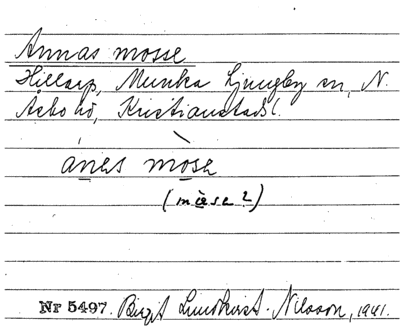 Annas mosse
Hillarp, Munka Ljungby sn, N.
Asbo hd, Kristianstads l.
ánas mose
(màse?)
Nr 5497. Birgit Lundkvist-Nilsson, 1941.